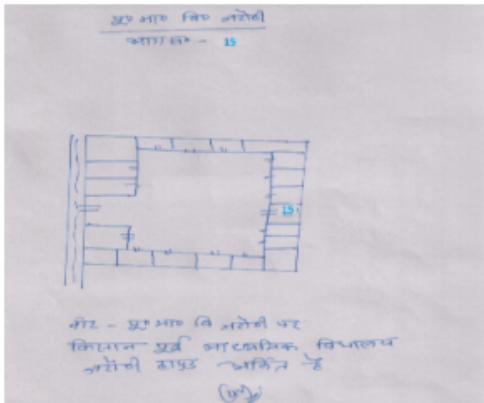 पू० मा० वि० नरौली
भाग सं० - 15
15
नोट - पू० मा० वि नरौली पर
किसान पूर्व माध्यमिक विधालय
नरौली हापुड़ अंकित है